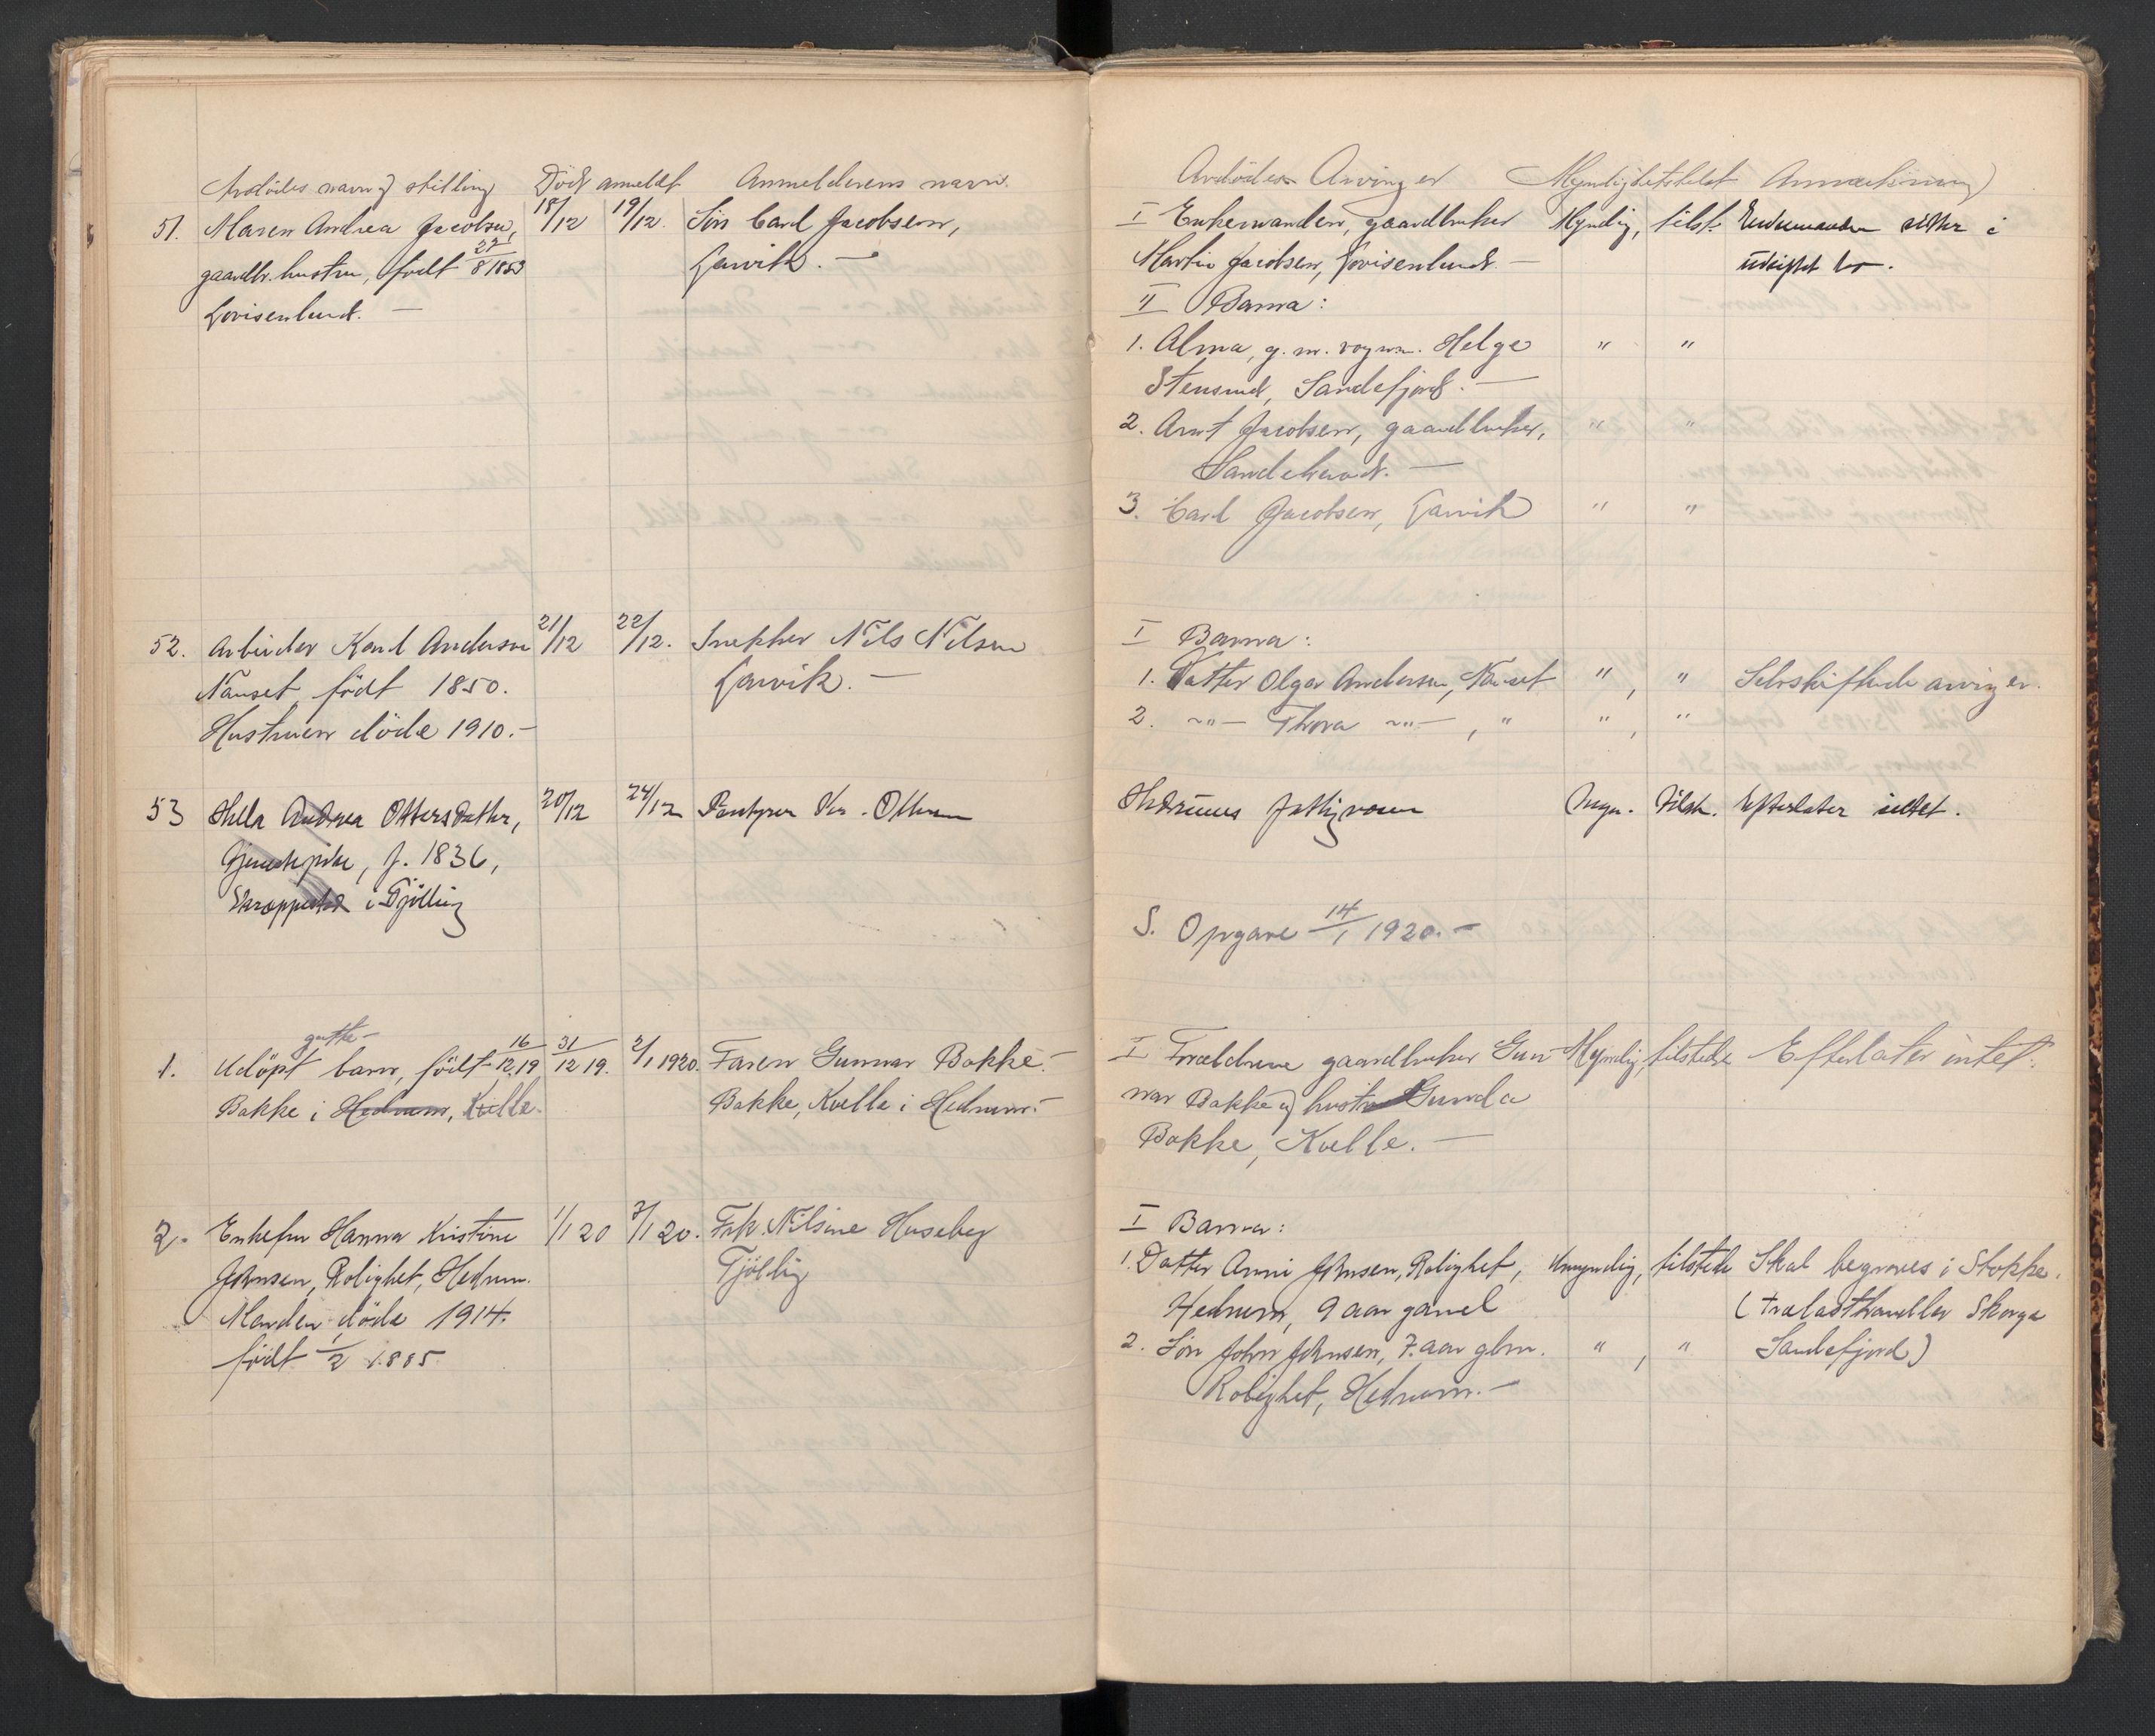 Avdödes navn og stilling Död anmeldt Anmelderens navn.
51. Maren Andrea Jacobsen, 18/12 19/12. Sön Carl Jacobsen,
gaardbr. hustru, født 22/8 1853 Larvik. —
Lovisenlund. —
52. Arbeider Karl Andersen 21/12 22/12. Snekker Nils Nilsen
Nanset, födt 1850. Larvik. —
Hustruen döde 1910. —
53 Hella Andrea Ottersdatter, 20/12 24/12 Kr. Ottersen
f. 1836,
i Tjölling
gutte-
1. Udöpt barn, födt 16/12 19 31/12 19. 2/1 1920. Faren Gunnar Bakke. —
Bakke i Hedrum, Kvelle. Bakke, Kvelle i Hedrum. —
2. Enkefru Hanna Kristine 1/1 20 3/1 20. Frk. Nilsine Huseby
Johnsen, Rolighet, Hedrum. Tjölling
Manden döde 1914.
födt 1/2 1885.
Avdödes Arvinger Myndighetstilst Anmerkning
I Enkemanden, gaardbruker Myndig, tilst. Enkemanden sitter i
Martin Jacobsen, Lovisenlund — uskiftet bo.
II Barna:
1. Alma, g. m. vognm. Helge " "
Stensrud, Sandefjord. —
2. Arnt Jacobsen, gaardbruker, " "
Sandeherred. —
3. Carl Jacobsen, Larvik " "
I Barna:
1. Datter Olga Andersen, Nanset " , " Selvskiftende arvinger.
2. -"- Thora -"- , " " , "
Hedrums fattigvæsen Myn. tilst. Efterlater intet.
S. Opgave 14/1 1920. —
I Forældrene gaardbruker Gun- Myndig, tilstede Efterlater intet.
nar Bakke og hustru Gunda
Bakke, Kvelle. —
I Barna:
1. Datter Anni Johnsen, Rolighet, Umyndig, tilstede Skal begraves i Stokke.
Hedrum, 9 aar gamel (trælasthandler Skorge
2. Sön John Johnsen, 7 aar glm. " , " Sandefjord)
Rolighet, Hedrum. —